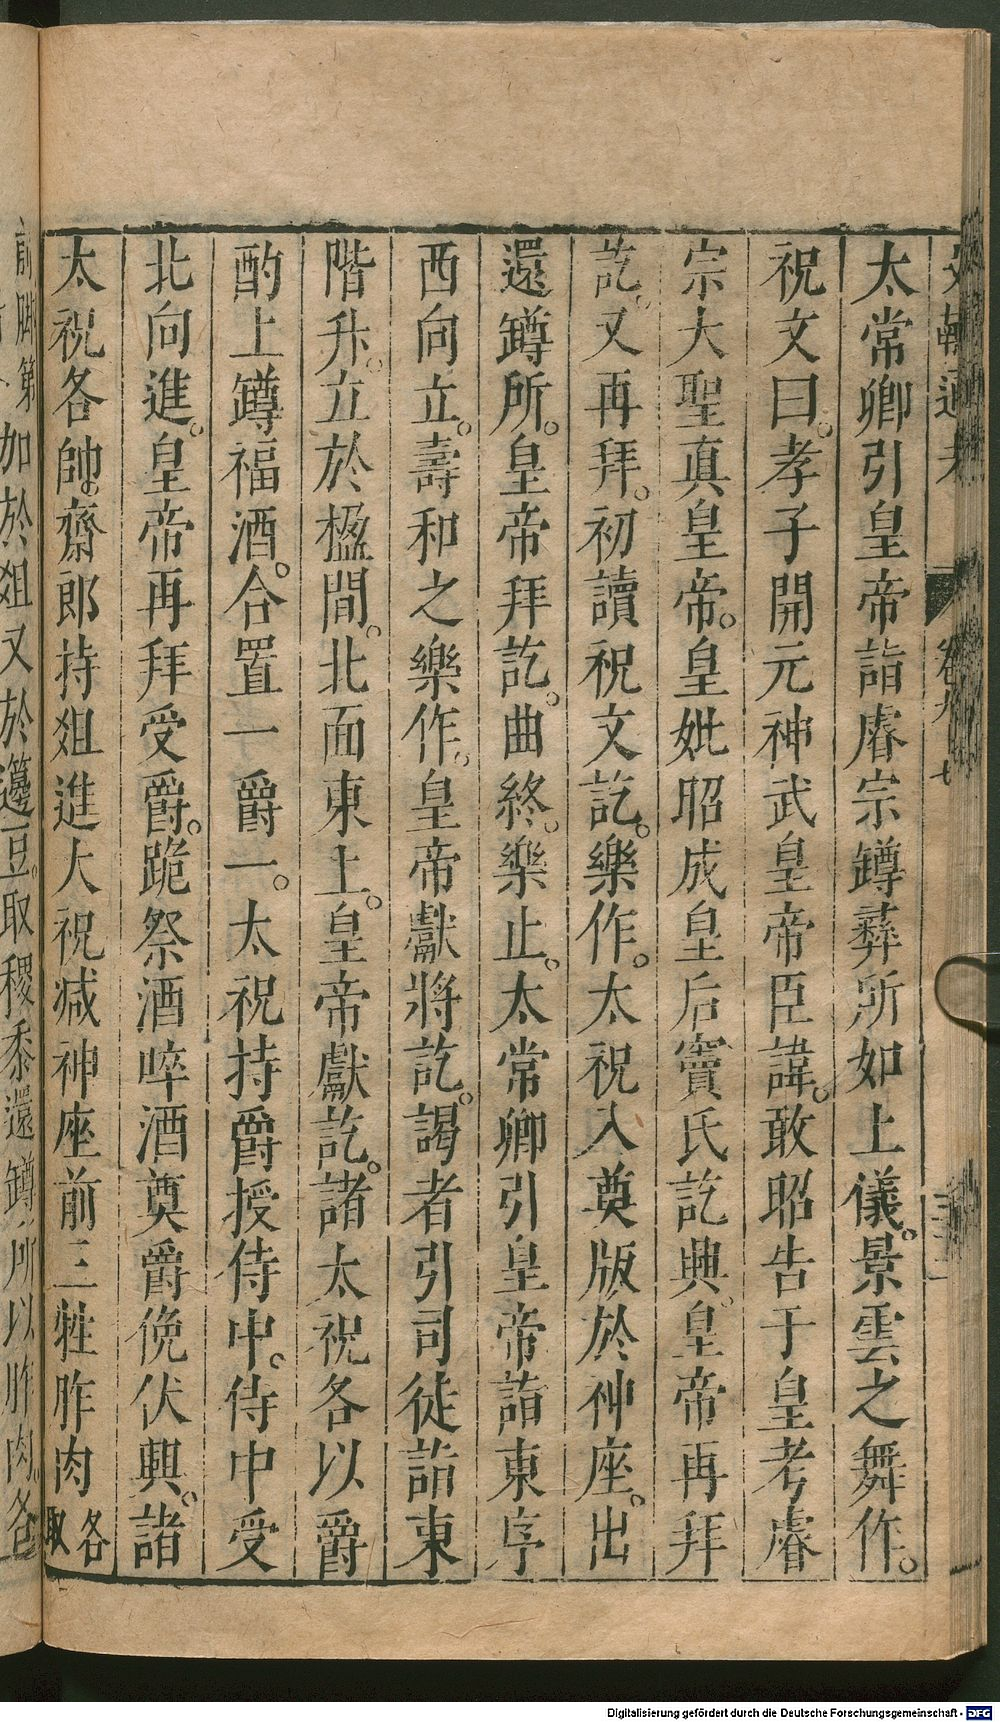 太常卿引皇帝詣睿宗罇彝所如上儀。景雲之舞作。
祝文曰。孝子開元神武皇帝臣諱。敢昭告于皇考睿
宗大聖眞皇帝。皇妣昭成皇后竇氏訖興。皇帝再拜
訖。又再拜。初讀祝文訖。樂作。太祝入奠版於神座。出
還罇所。皇帝拜訖。曲終。樂止。太常卿引皇帝詣東序
西向立。壽和之樂作。皇帝獻將訖。謁者引司徒詣東
階升。立於楹間。北面東上。皇帝獻訖。諸太祝各以爵
酌上罇福酒。合置一爵一。太祝持爵授侍中。侍中受
北向進。皇帝再拜受爵。跪祭酒啐酒奠爵俛伏興。諸
太祝各帥。齋郎持俎進大祝減神座前三牲胙肉各取
加於俎又於籩豆。取稷黍還罇所以胙肉。各
卷九十七
Digitalisierung gefördert durch die Deutsche Forschungsgemeinschaft - DFG